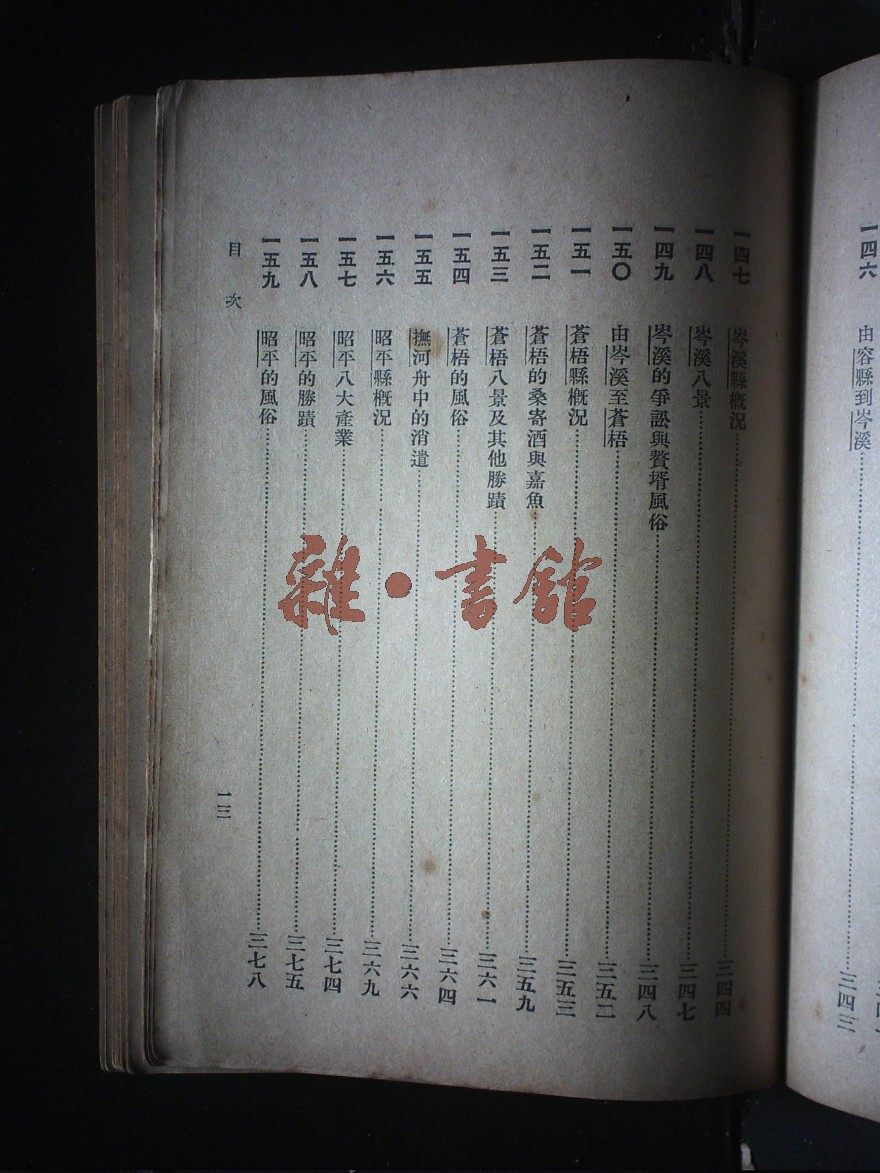 一四六 由容縣到岑溪……三四三
一四七 岑溪縣概況……三四四
一四八 岑溪八景……三四七
一四九 岑溪的爭訟與贅壻風俗……三四八
一五〇 由岑溪至蒼梧……三五二
一五一 蒼梧縣概況……三五三
一五二 蒼梧的桑寄酒與嘉魚……三五九
一五三 蒼梧八景及其他勝蹟……三六一
一五四 蒼梧的風俗……三六四
一五五 撫河舟中的消遣……三六六
一五六 昭平縣概況……三六九
一五七 昭平八大產業……三七四
一五八 昭平的勝蹟……三七五
一五九 昭平的風俗……三七八
目次
一三
雜·書館